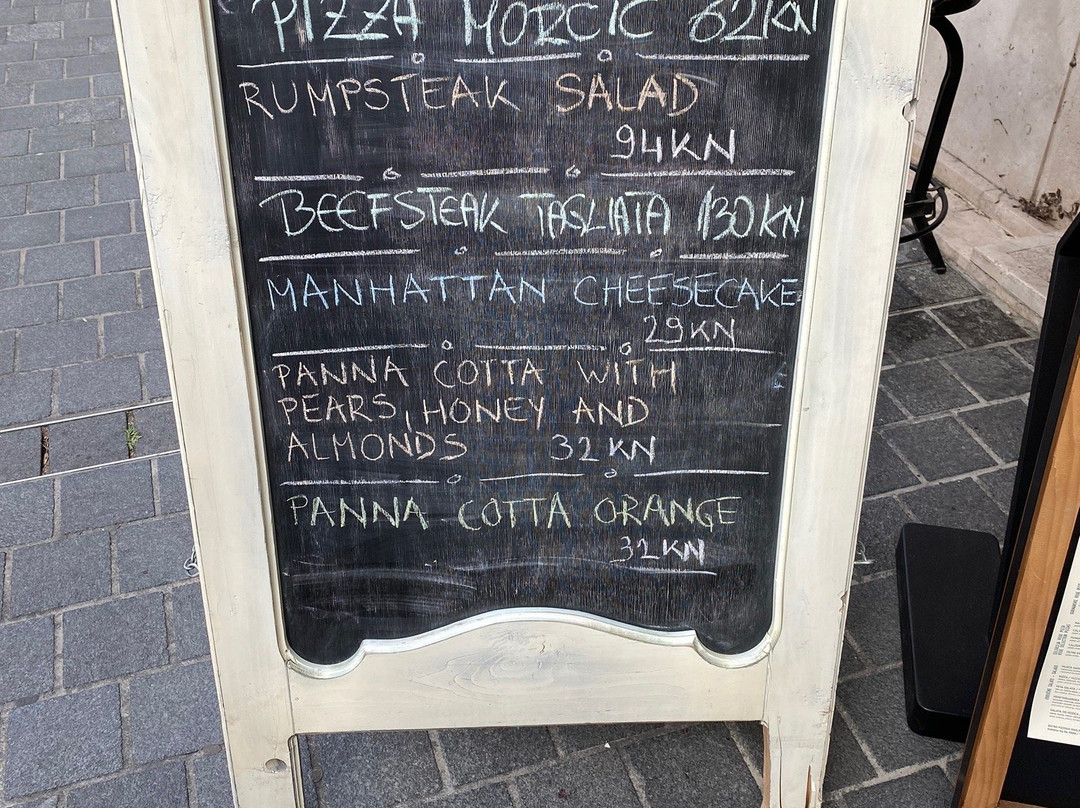 PIZZA MORCIC 62KN
RUMPSTEAK SALAD
94KN
BEEFSTEAK TAGLIATA 130KN
MANHATTAN CHEESECAKE
29KN
PANNA COTTA WITH
PEARS, HONEY AND
ALMONDS 32KN
PANNA COTTA ORANGE
32KN